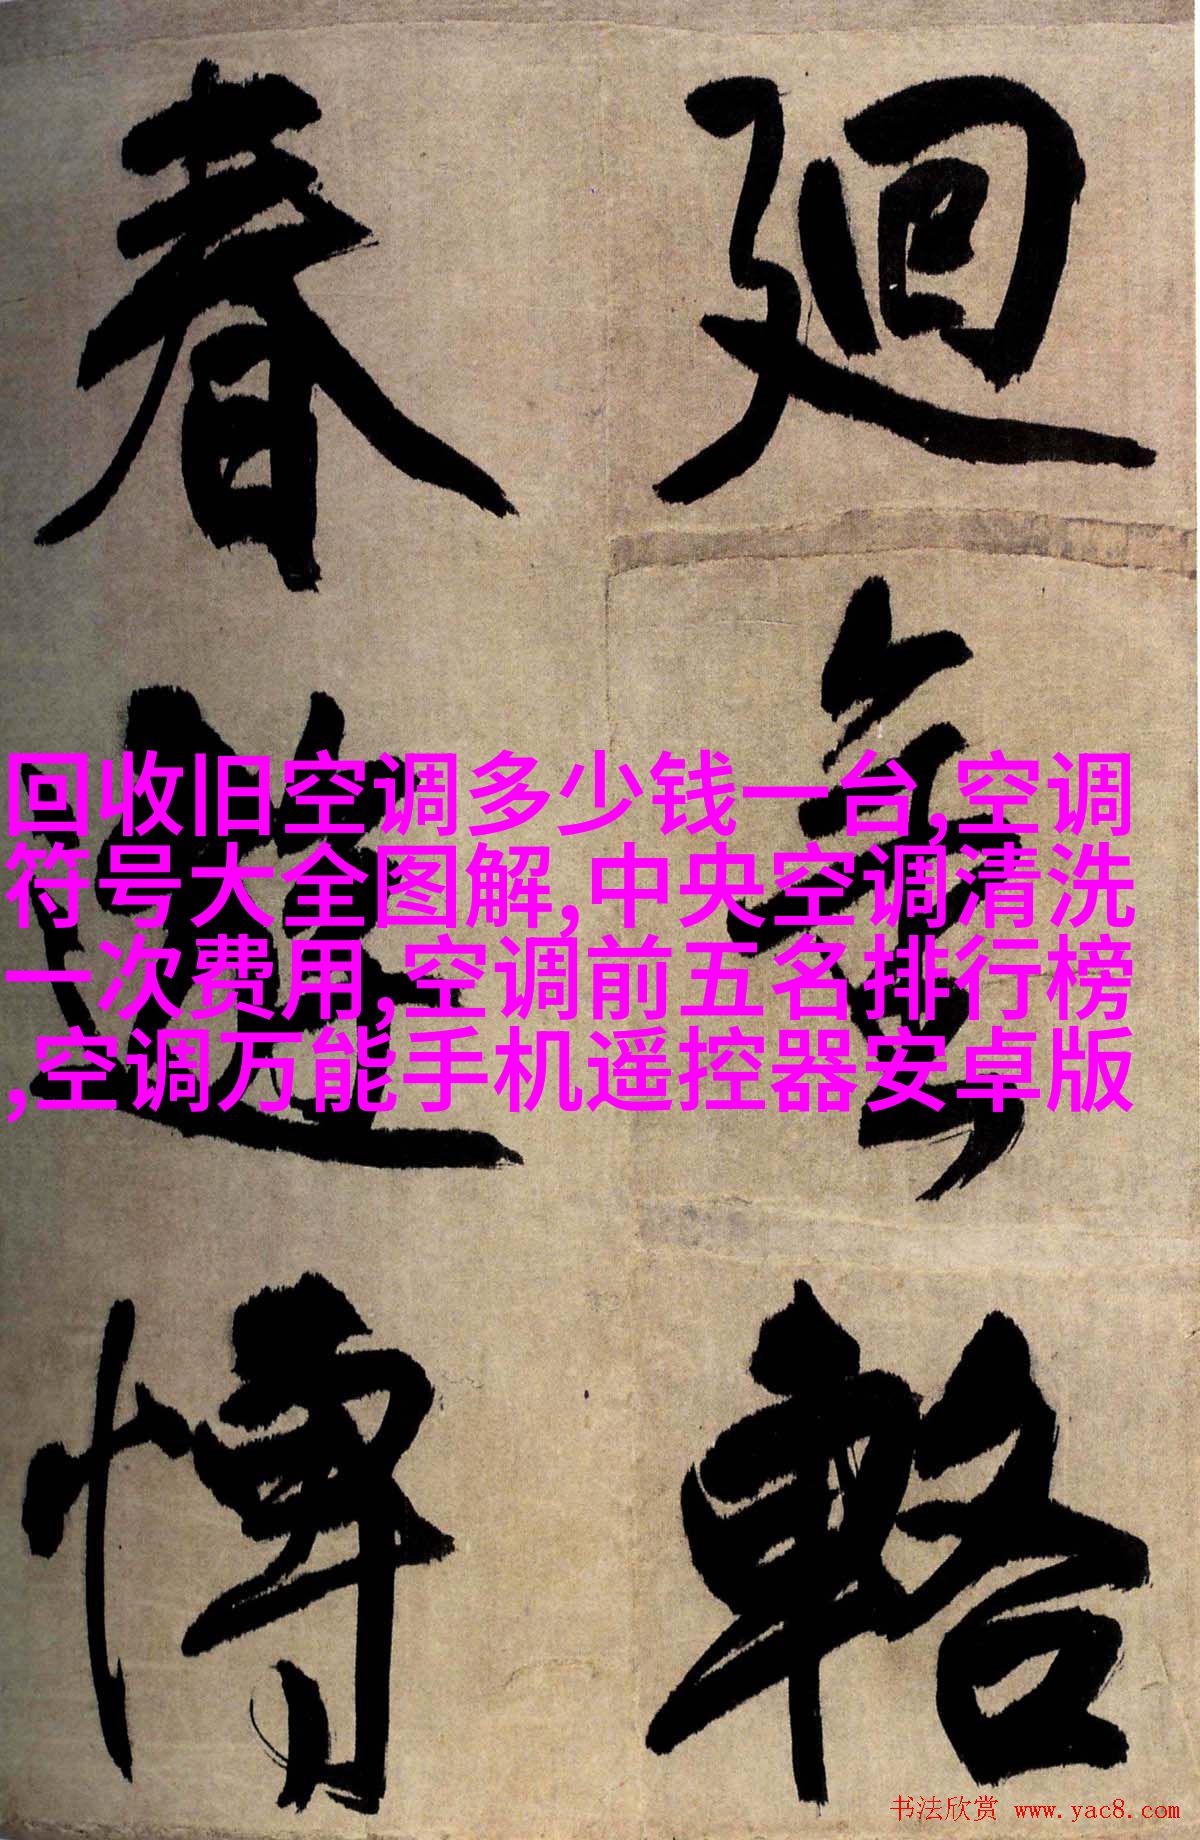 廻
鸞
輅
春
遊
博
回收旧空调多少钱一台,空调
符号大全图解,中央空调清洗
一次费用,空调前五名排行榜
,空调万能手机遥控器安卓版
书法欣赏 www.yac8.com